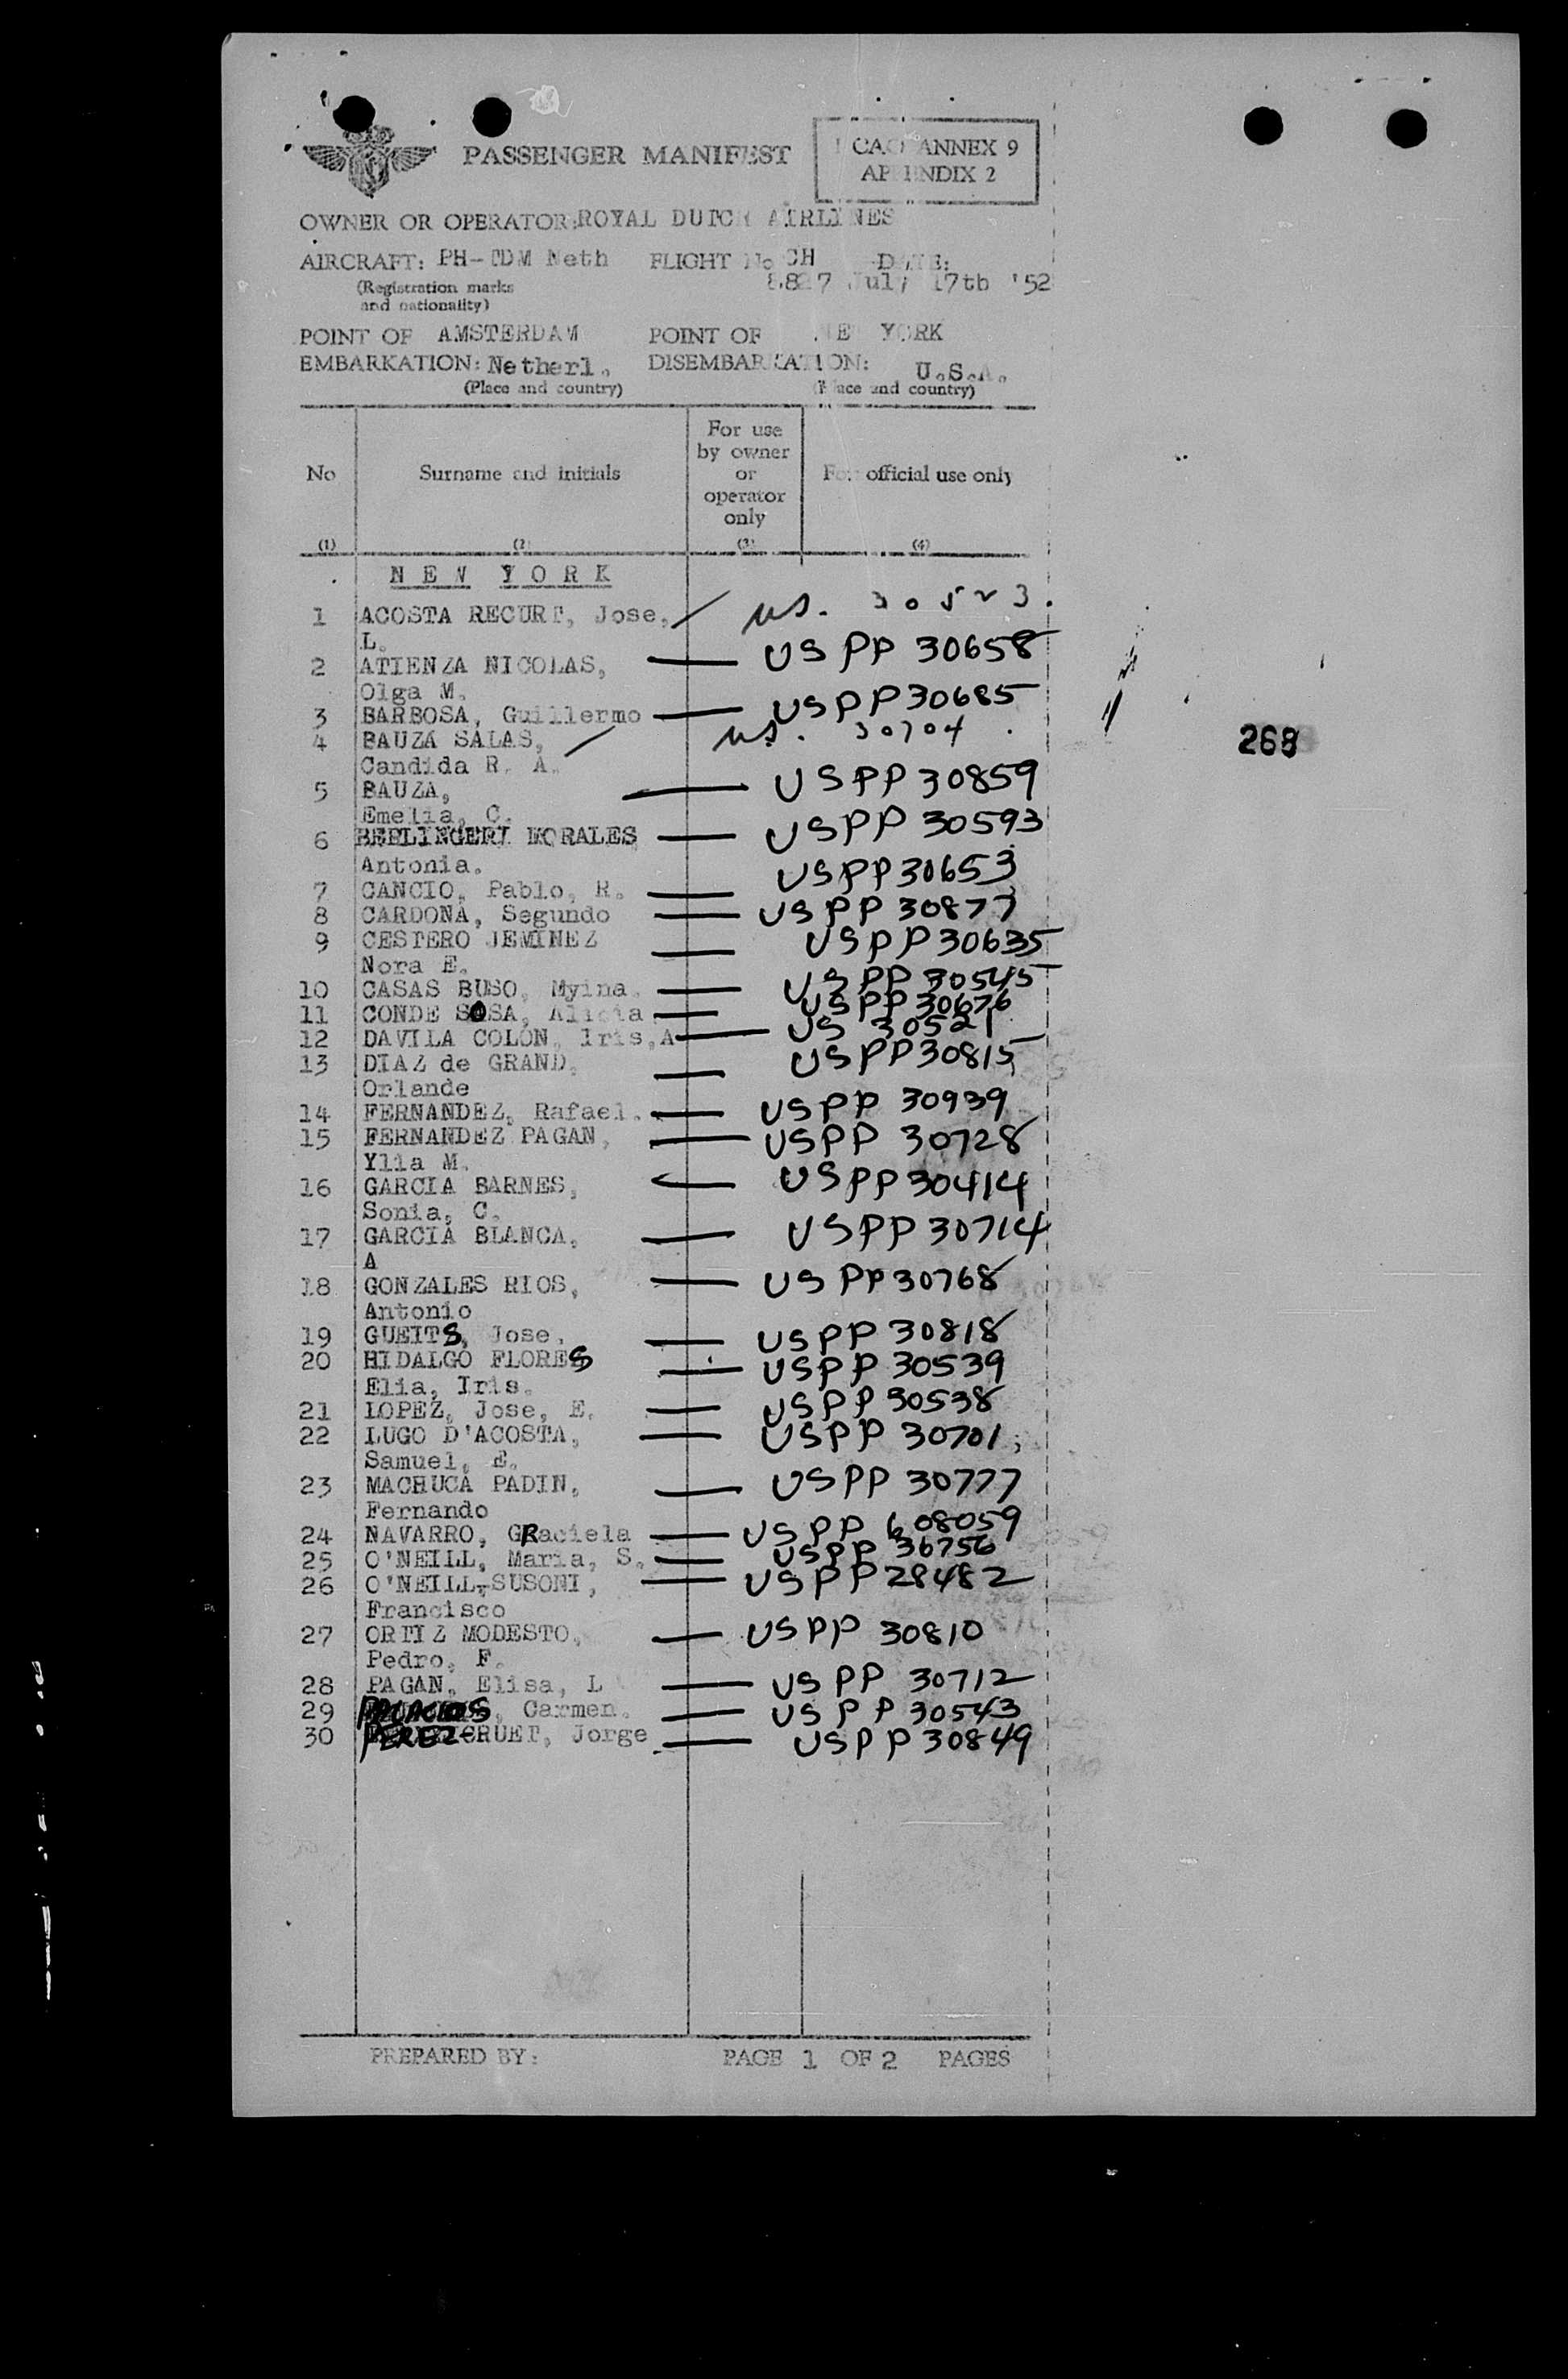 PASSENGER MANIFEST
ICAO ANNEX 9
APPENDIX 2
OWNER OR OPERATOR: ROYAL DUTCH AIRLINES
AIRCRAFT: PH-TDM Neth FLIGHT No CH DATE:
(Registration marks 8827 July 17th '52
and nationality)
POINT OF AMSTERDAM POINT OF NEW YORK
EMBARKATION: Netherl. DISEMBARKATION: U.S.A.
(Place and country) (Place and country)
For use
by owner
No Surname and initials or For official use only
operator
only
(1) (2) (3) (4)
NEW YORK
1 ACOSTA RECURT, Jose, US. 30523.
L.
2 ATIENZA NICOLAS, US PP 30658
Olga M.
3 BARBOSA, Guillermo USPP 30685
4 BAUZA SALAS, US. 30704
Candida R. A.
5 BAUZA, USPP 30859
Emelia, C.
6 BERLINGERI MORALES USPP 30593
Antonia.
7 CANCIO, Pablo, R. USPP 30653
8 CARDONA, Segundo USPP 30877
9 CESTERO JEMINEZ USPP 30635
Nora E.
10 CASAS BUSO, Myina. USPP 30545
11 CONDE SOSA, Alicia USPP 30676
12 DAVILA COLON, Iris,A US 30521
13 DIAZ de GRAND, USPP 30815
Orlande
14 FERNANDEZ, Rafael. USPP 30939
15 FERNANDEZ PAGAN, USPP 30728
Ylia M.
16 GARCIA BARNES, USPP 30414
Sonia, C.
17 GARCIA BLANCA, USPP 30714
A
18 GONZALES RIOS, US PP 30768
Antonio
19 GUEITS, Jose, USPP 30818
20 HIDALGO FLORES USPP 30539
Elia, Iris.
21 LOPEZ, Jose, E. USPP 30538
22 LUGO D'ACOSTA, USPP 30701
Samuel, E.
23 MACHUCA PADIN, USPP 30777
Fernando
24 NAVARRO, GRaciela USPP 608059
25 O'NEILL, Maria, S. USPP 36756
26 O'NEILL-SUSONI, USPP 28482
Francisco
27 ORTIZ MODESTO, USPP 30810
Pedro, F.
28 PAGAN, Elisa, L US PP 30712
29 PALACIOS, Carmen. USPP 30543
30 PEREZ-CRUET, Jorge USPP 30849
PREPARED BY: PAGE 1 OF 2 PAGES